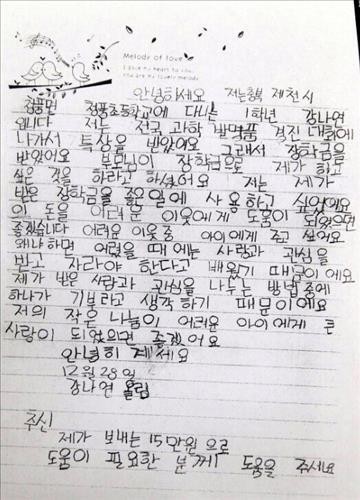 Melody of love
I give my heart to you.
You are my lovely melody
안녕하세요 저는충북 제천시
청풍면 청풍초등학교에 다니는 1학년 강나연
입니다 저는 전국 과학 발명품 경진 대회에
나가서 특상을 받았어요 그래서 장학금을
받았어요 부모님이 장학금으로 제가 하고
싶은 것을 하라고 하셨어요 저는 제가
받은 장학금을 옳은일에 사용하고 싶었어요
이 돈을 어려운 이웃에게 도움이 되었으면
좋겠습니다 어려운 이웃중 아이에게 주고 싶어요
왜냐하면 어렸을 때에는 사랑과 관심을
받고 자라야 한다고 배웠기 때문이에요
제가 받은 사랑과 관심을 나누는 방법중에
하나가 기부라고 생각하기 때문이에요
저의 작은 나눔이 어려운 아이에게 큰
사랑이 되었으면 좋겠어요
안녕히 계세요
12월 28일
강나연 올림
추신
제가 보내는 15만원으로
도움이 필요한 분께 도움을 주세요